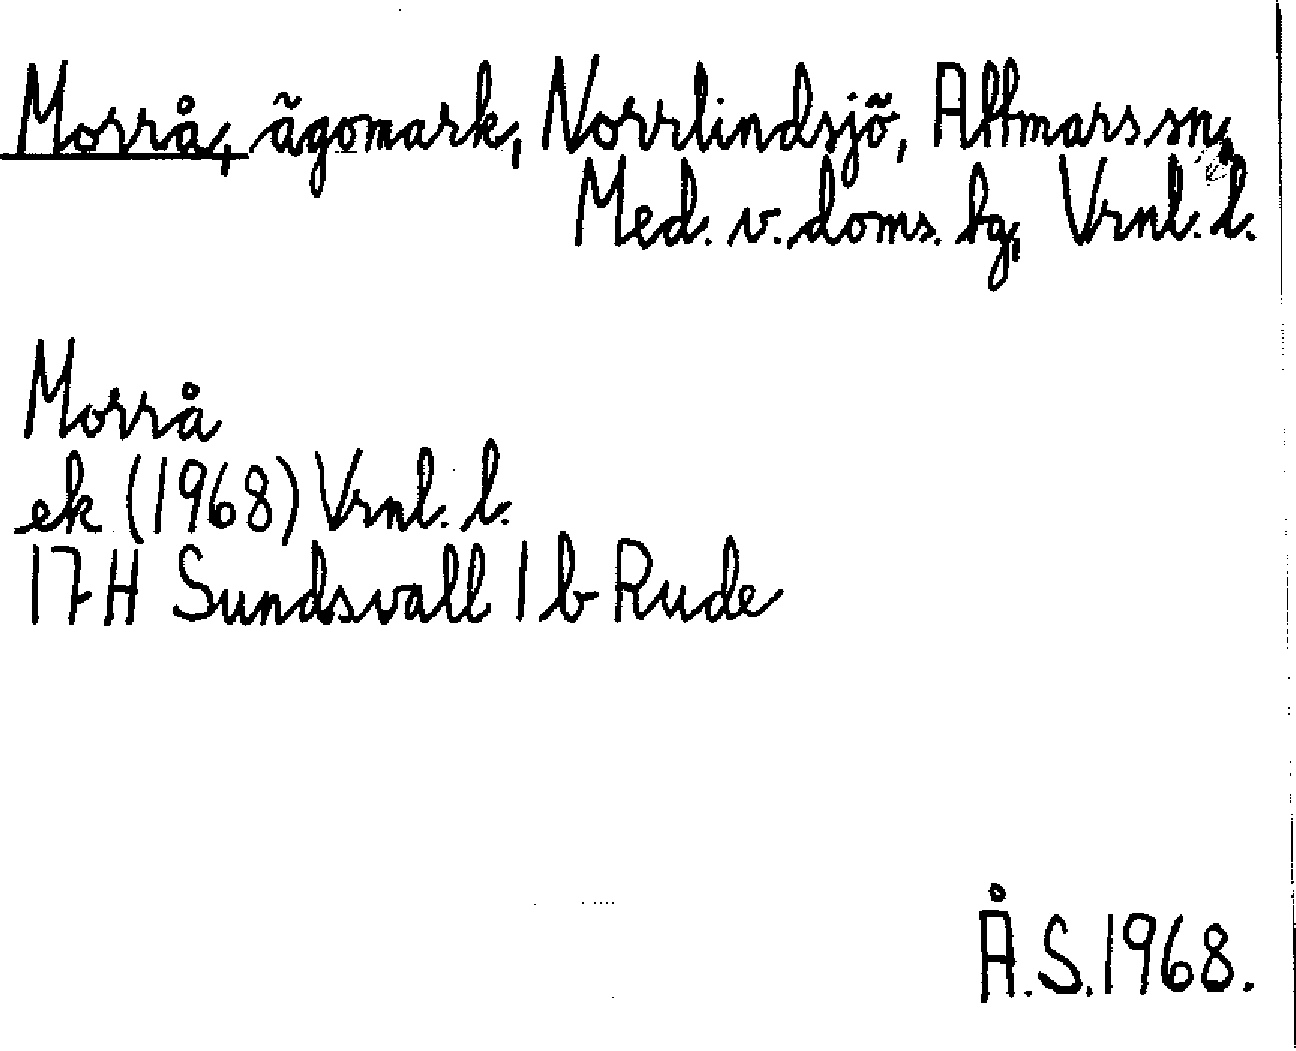 Morrå, ägomark, Norrlindsjö, Attmars sn,
Med. v. doms. hg, Vrnl. l.
Morrå
ek (1968) Vrnl. l.
17H Sundsvall 1 b Rude
Å.S. 1968.